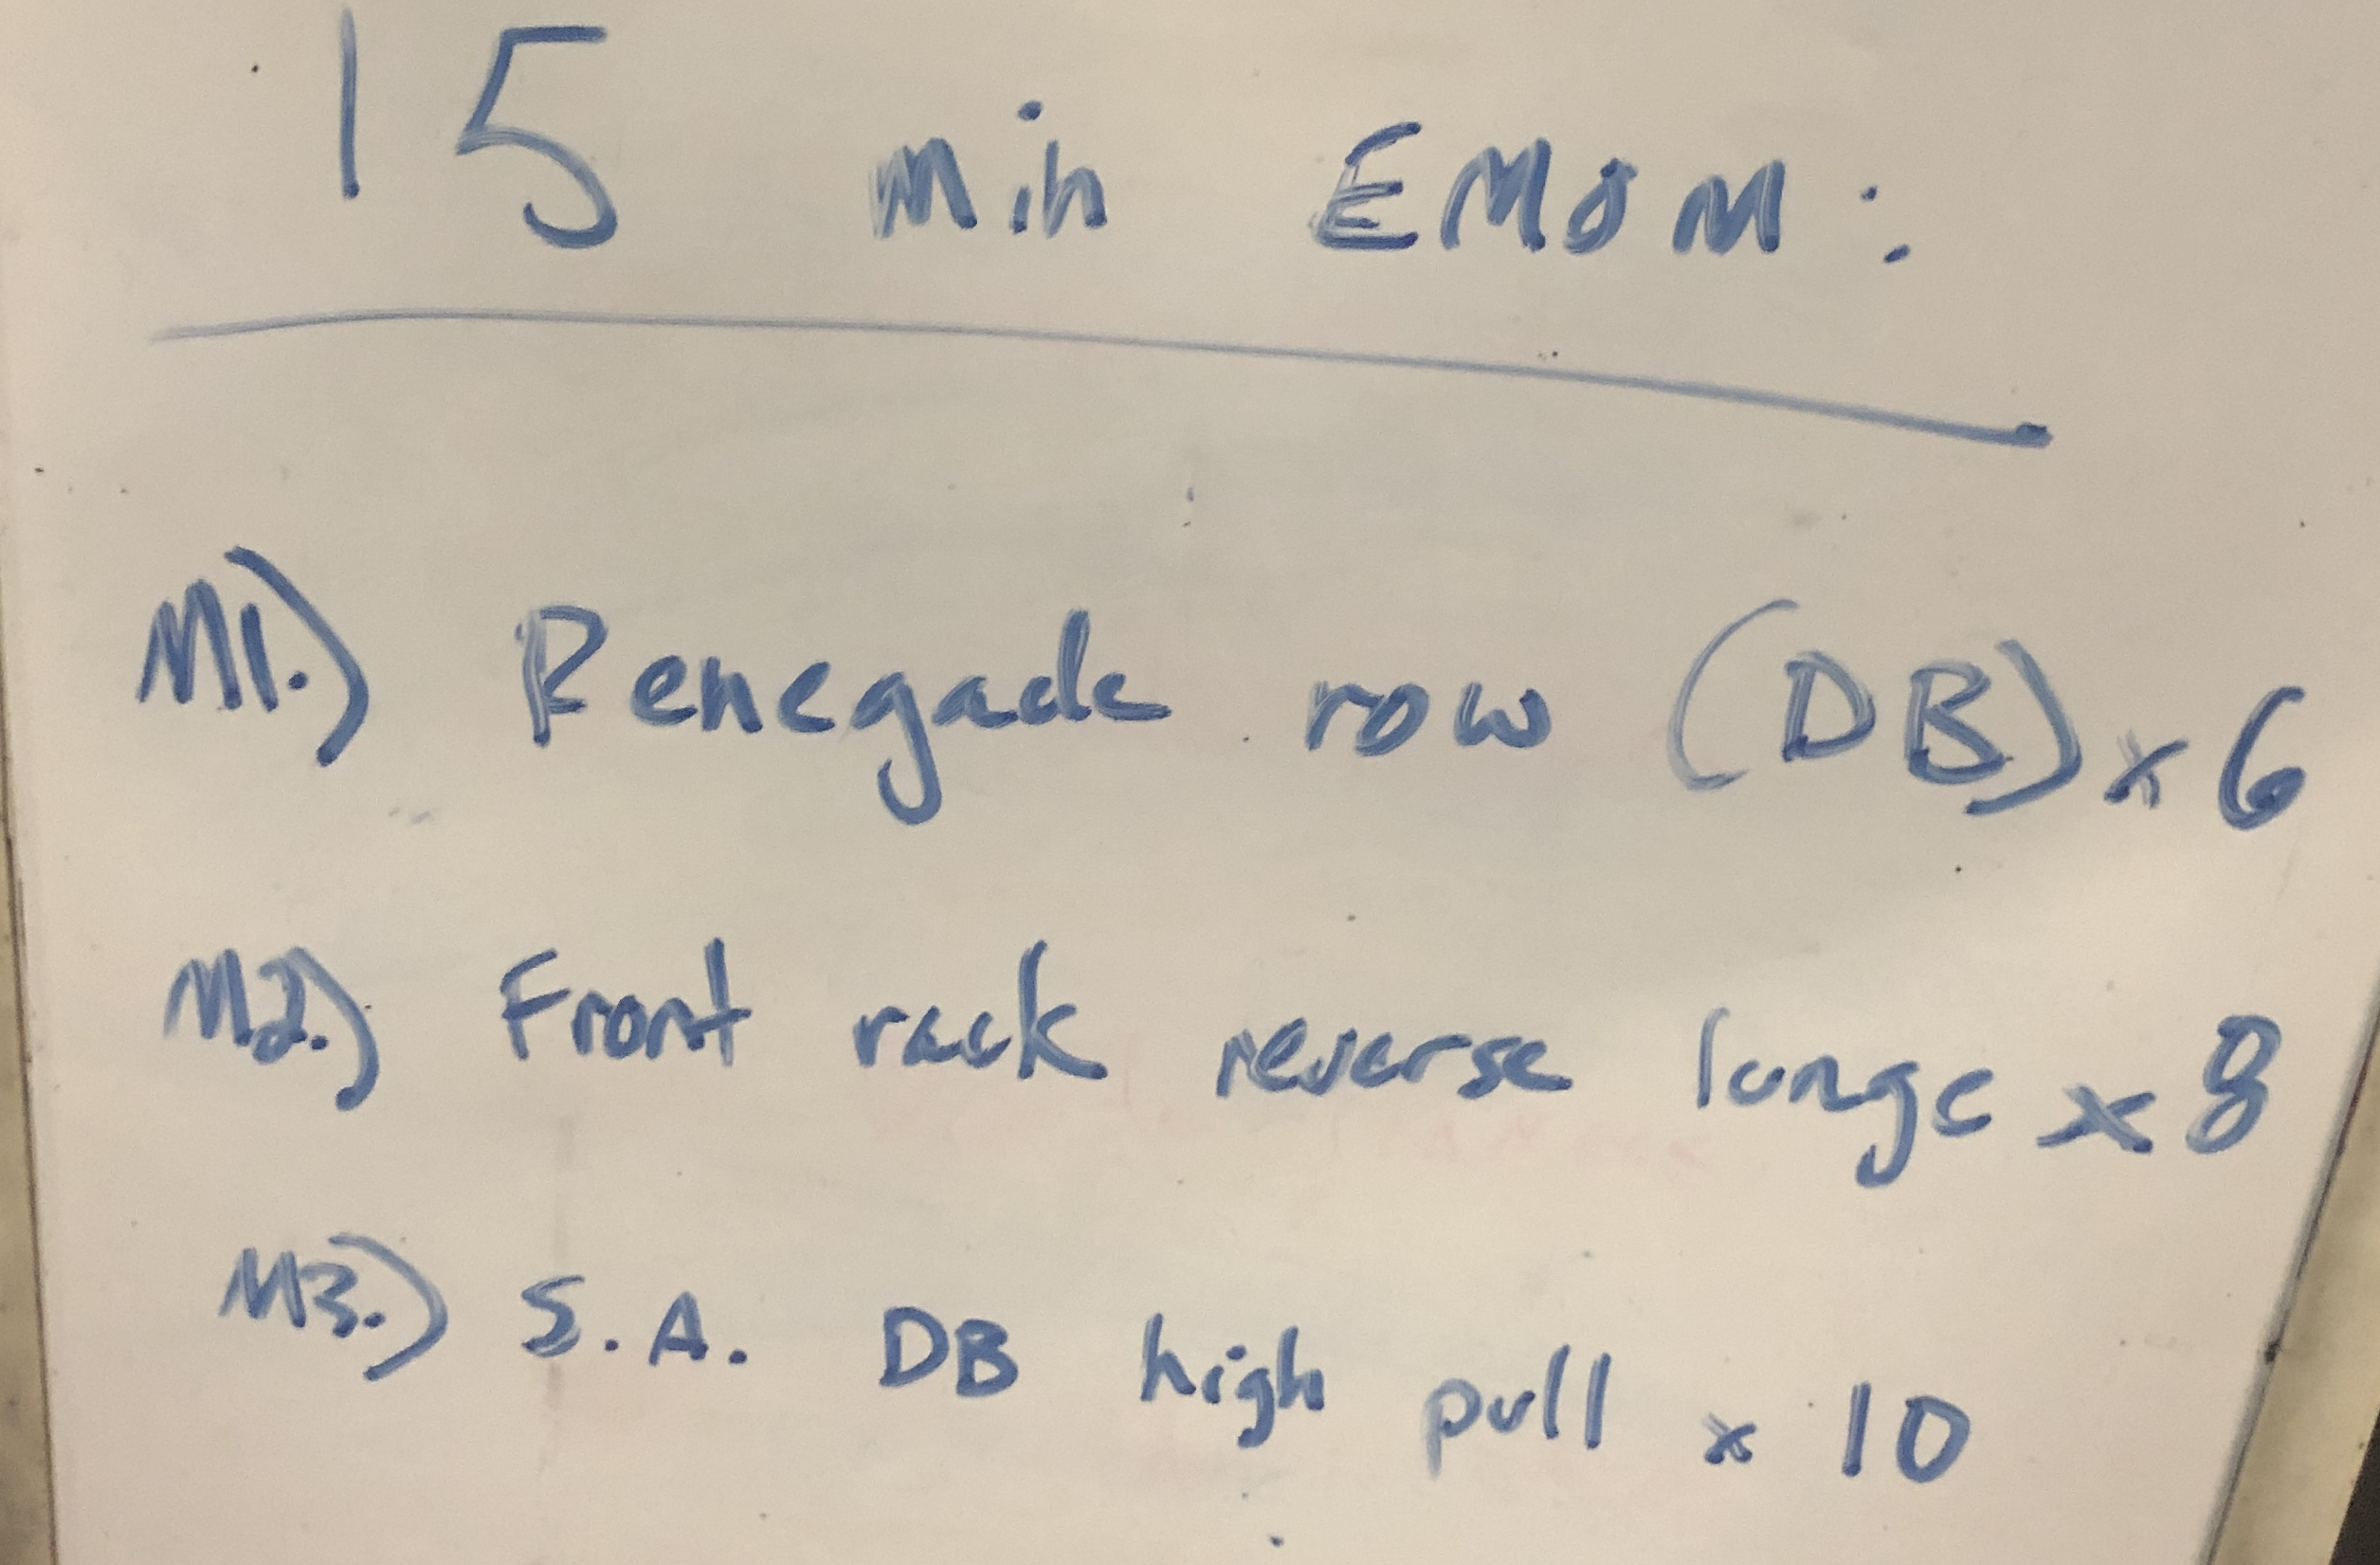 15 min EMOM:
M1.) Renegade row (DB) x 6
M2.) Front rack reverse lunge x 8
M3.) S.A. DB high pull x 10